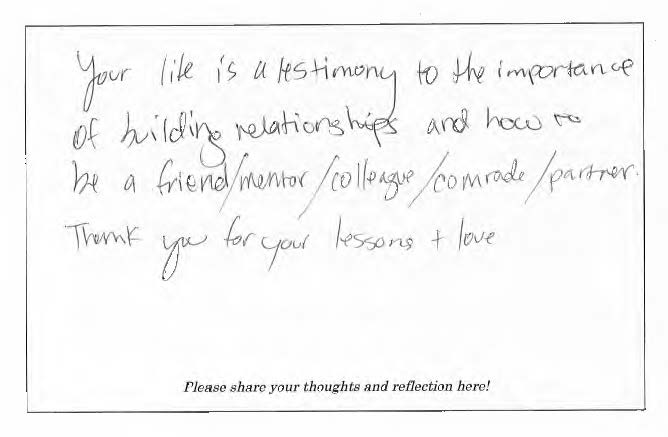 Your life is a testimony to the importance
of building relationships and how to
be a friend/mentor/colleague/comrade/partner.
Thank you for your lessons + love
Please share your thoughts and reflection here!